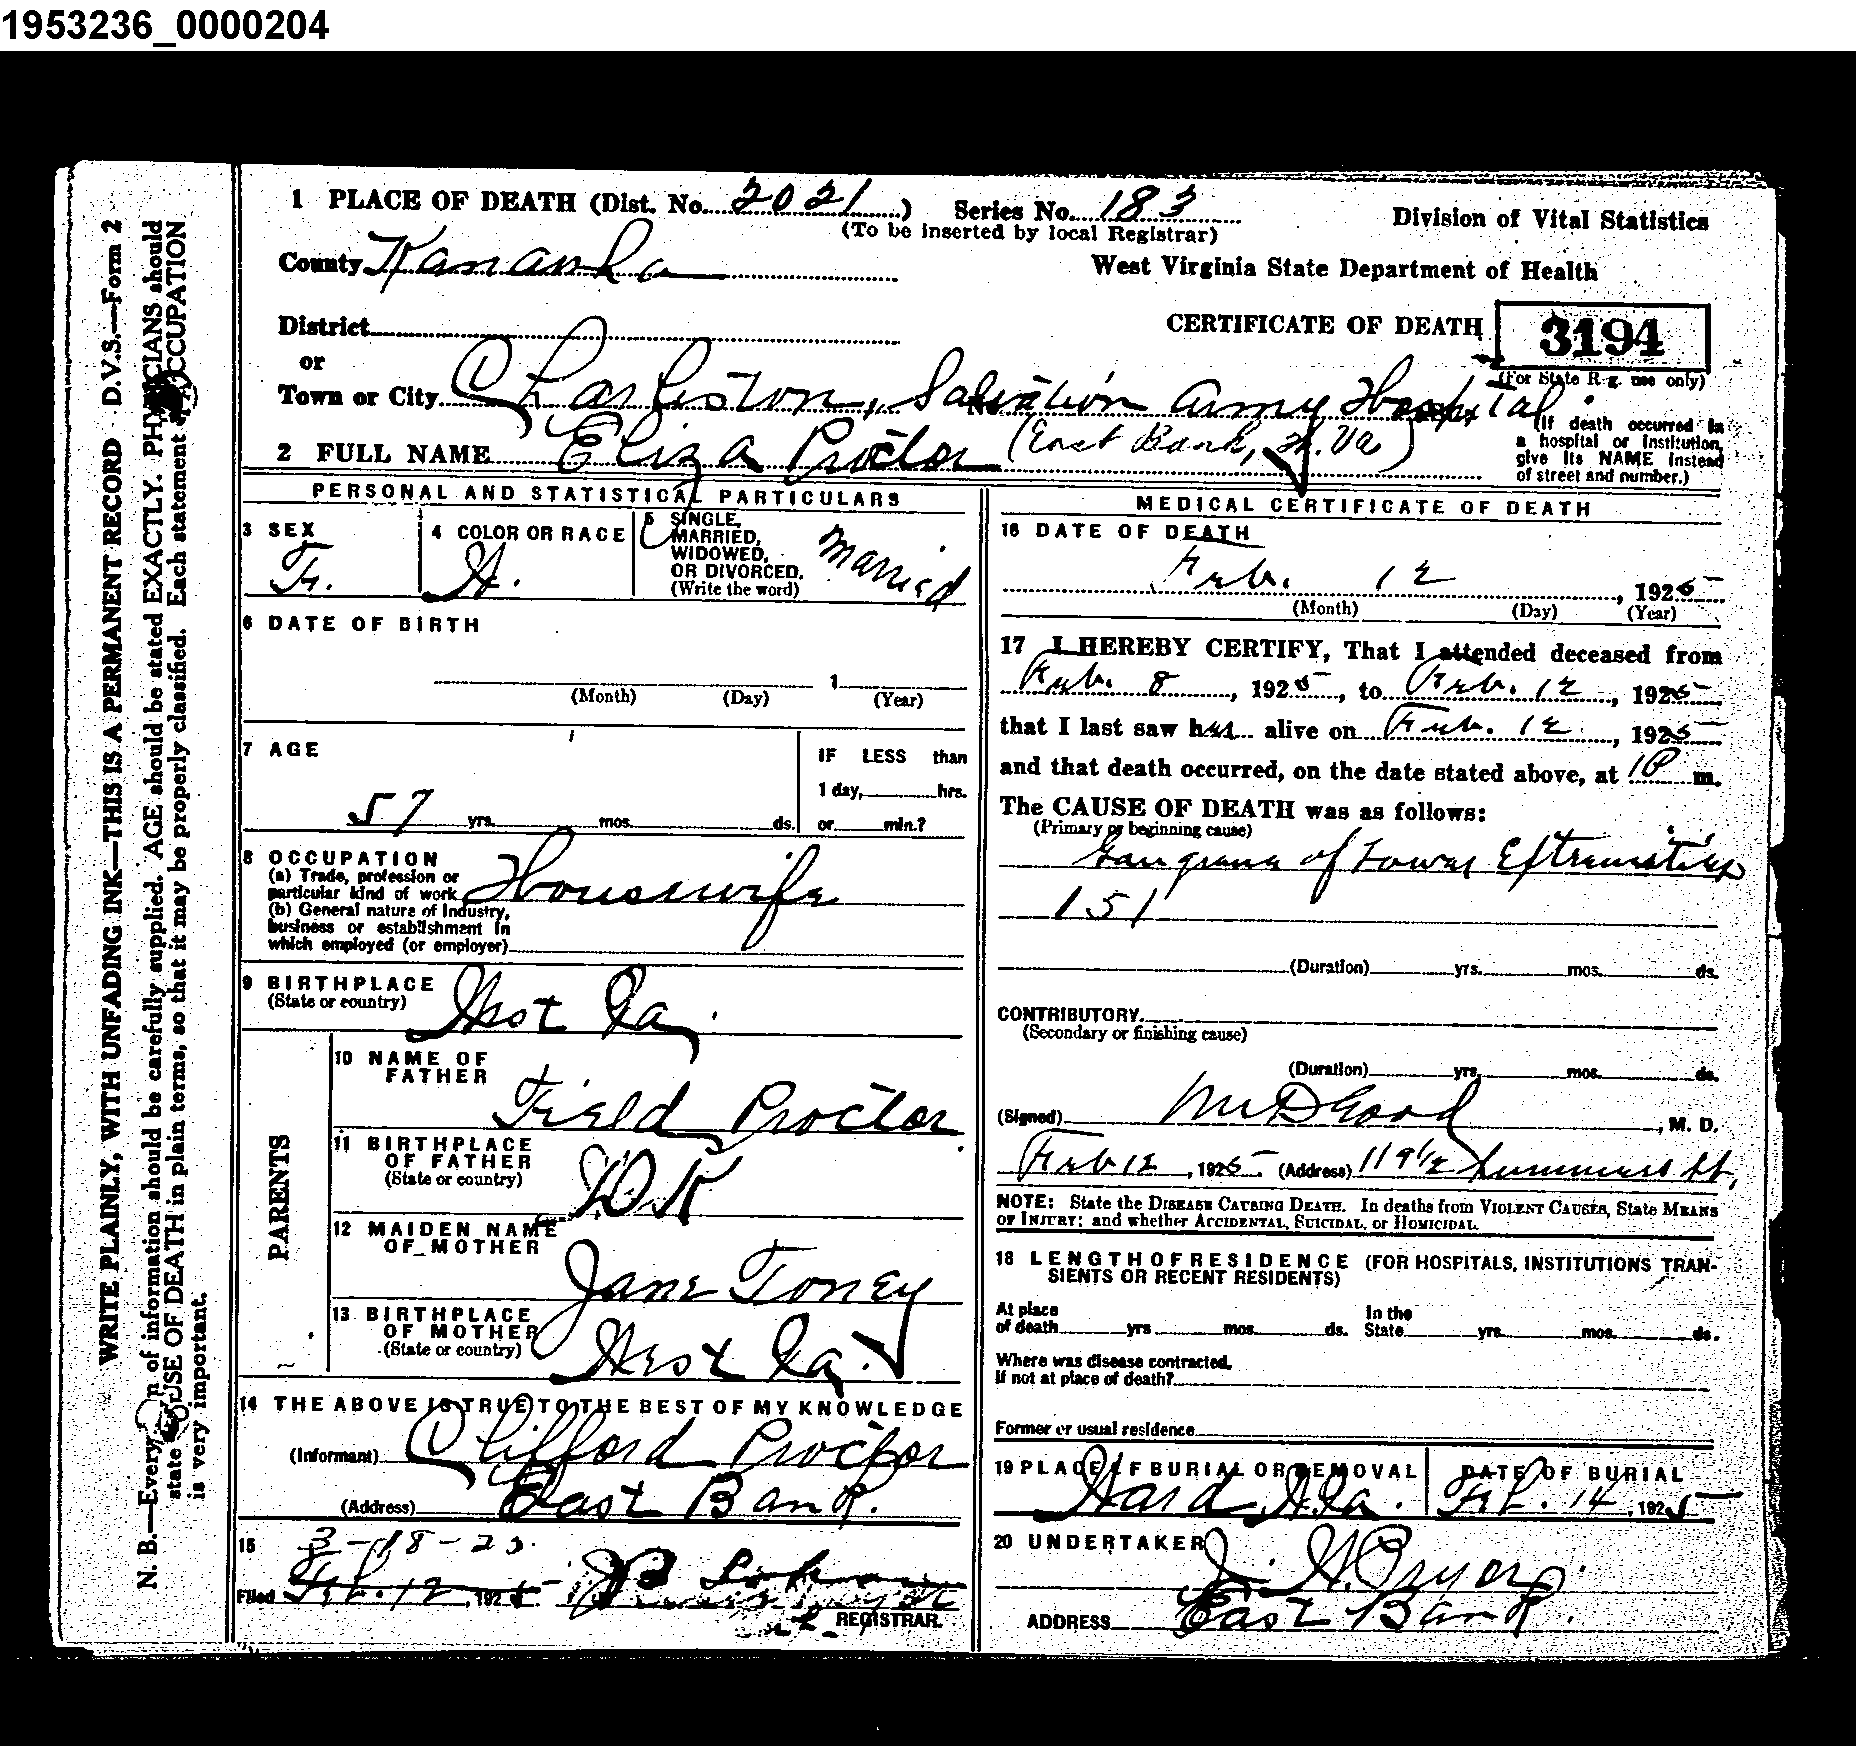 1953236_0000204
1 PLACE OF DEATH (Dist. No. 2021 ) Series No. 183 Division of Vital Statistics
(To be inserted by local Registrar)
County Kanawha West Virginia State Department of Health
District CERTIFICATE OF DEATH 3194
or (For State Reg. use only)
Town or City Charleston, Salvation Army Hospital
(If death occurred in a hospital or institution, give its NAME instead of street and number.)
2 FULL NAME Eliza Proctor (East Bank, W. Va)
PERSONAL AND STATISTICAL PARTICULARS
3 SEX
F.
4 COLOR OR RACE
W.
5 SINGLE,
MARRIED,
WIDOWED,
OR DIVORCED.
(Write the word)
Married
6 DATE OF BIRTH
1
(Month) (Day) (Year)
7 AGE
57 yrs. mos. ds.
IF LESS than
1 day, hrs.
or min.?
8 OCCUPATION
(a) Trade, profession or
particular kind of work Housewife
(b) General nature of Industry,
business or establishment in
which employed (or employer)
9 BIRTHPLACE
(State or country) West Va.
PARENTS
10 NAME OF
FATHER
Field Proctor
11 BIRTHPLACE
OF FATHER
(State or country)
D K
12 MAIDEN NAME
OF MOTHER
Jane Toney
13 BIRTHPLACE
OF MOTHER
(State or country) West Va.
14 THE ABOVE IS TRUE TO THE BEST OF MY KNOWLEDGE
(Informant) Clifford Proctor
(Address) East Bank.
15 3-18-25
Filed Feb. 12 1925
REGISTRAR.
MEDICAL CERTIFICATE OF DEATH
16 DATE OF DEATH
Feb. 12, 1925
(Month) (Day) (Year)
17 I HEREBY CERTIFY, That I attended deceased from
Feb. 8, 1925, to Feb. 12, 1925
that I last saw her alive on Feb. 12, 1925
and that death occurred, on the date stated above, at 1P m.
The CAUSE OF DEATH was as follows:
(Primary or beginning cause)
Gangrene of Lower Extremities
151
(Duration) yrs. mos. ds.
CONTRIBUTORY.
(Secondary or finishing cause)
(Duration) yrs. mos. ds.
(Signed) Wm D Good, M. D.
Feb 12, 1925 (Address) 119 1/2 Summers St.
NOTE: State the DISEASE CAUSING DEATH. In deaths from VIOLENT CAUSES, State MEANS
OF INJURY; and whether ACCIDENTAL, SUICIDAL, or HOMICIDAL.
18 LENGTH OF RESIDENCE (FOR HOSPITALS, INSTITUTIONS TRAN-
SIENTS OR RECENT RESIDENTS)
At place In the
of death yrs mos. ds. State yrs. mos. ds.
Where was disease contracted,
if not at place of death?
Former or usual residence
19 PLACE OF BURIAL OR REMOVAL
Ward W.Va.
DATE OF BURIAL
Feb. 14, 1925
20 UNDERTAKER
J. W. Pryor
ADDRESS East Bank.
WRITE PLAINLY, WITH UNFADING INK—THIS IS A PERMANENT RECORD D.V.S.—Form 2
N. B.—Every of information should be carefully supplied. AGE should be stated EXACTLY. PHYSICIANS should
state CAUSE OF DEATH in plain terms, so that it may be properly classified. Each statement OCCUPATION
is very important.